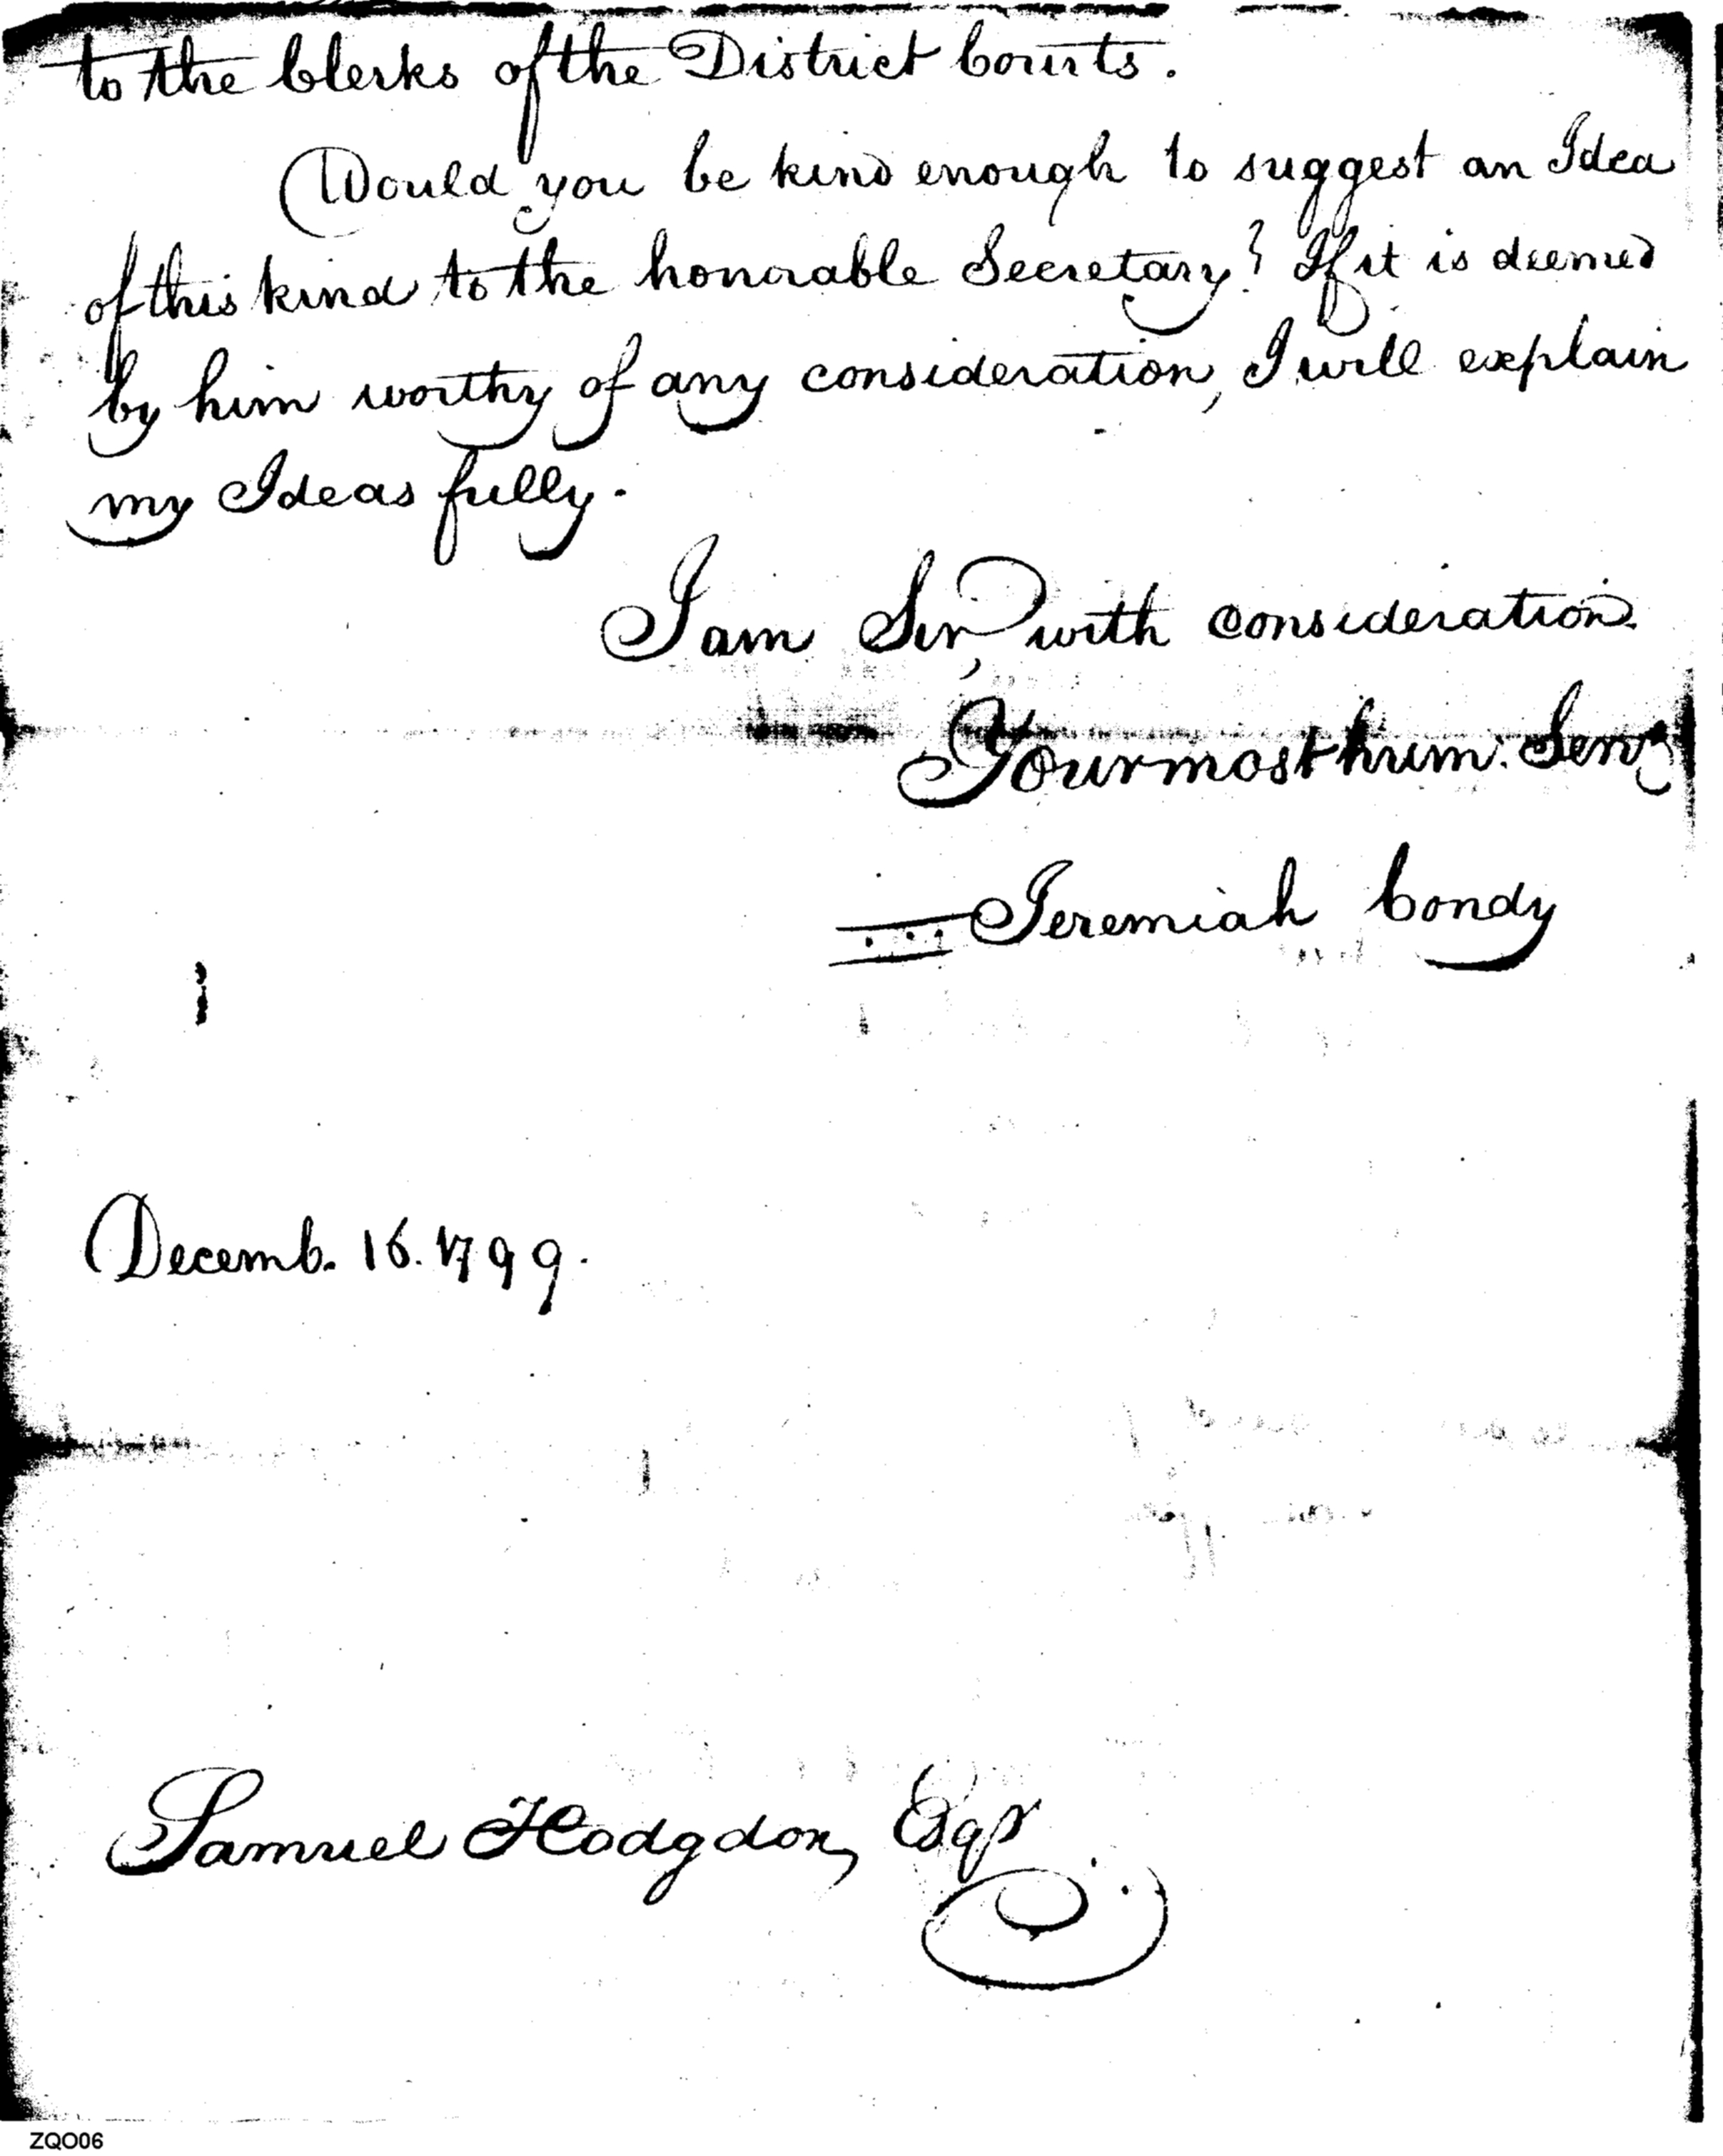 to the Clerks of the District Courts.
Would you be kind enough to suggest an Idea
of this kind to the honorable Secretary? If it is deemed
by him worthy of any consideration, I will explain
my Ideas fully.
I am Sir, with consideration
Your most hum: Servt
Jeremiah Condy
Decemb. 16. 1799.
Samuel Hodgdon, Esqr
ZQO06